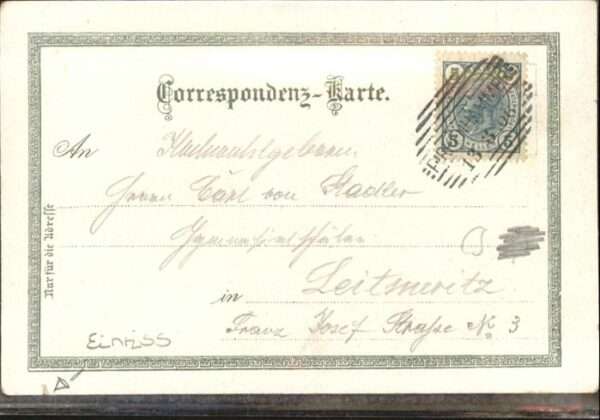 Correspondenz-Karte.
5 5
An Hochwohlgeboren
Herrn Carl von Stadler
Gymnasialschüler
in Leitmeritz
Franz Josef Straße No 3
Nur für die Adresse
Einriss